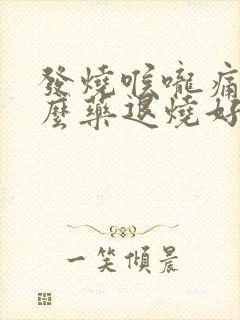 發燒喉嚨痛
麼藥退燒好
一笑傾晨